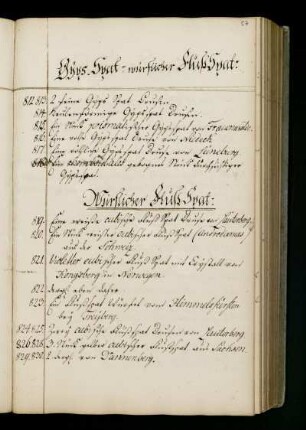 54
Gÿps-Spat-würflicher Fluß Spat:
812. 813. 2 feine Gyps Spat Drusen.
814. Keilenförmige Gypsspat Drusen.
815. Ein Stück Gypsspat von
816. Eine Gypsspat Druse von
817. Eine Gypsspat Druse von Lüneburg
818. Ein gebogenes Stück durchsichtiger
Gypsspat.
Würflicher Fluß Spat:
819. Eine weiße cubische Flußspat Druse von Lauterberg.
820. Ein Stück weißer cubischer Flußspat
aus der Schweiz
821. Violetter cubischer Fluß Spat mit Crystall von
Kongsberg in Norwegen.
822. dergl. eben daher
823. Ein Flußspat Würfel vom Himmelsfürsten
bey Freyberg.
824. 825. Zwey cubische Flußspat Drusen von Lauterberg
826. 828. 3. Stück gelber cubischer Flußspat aus Sachsen.
829. 830. 2 dergl. von Dannenberg.